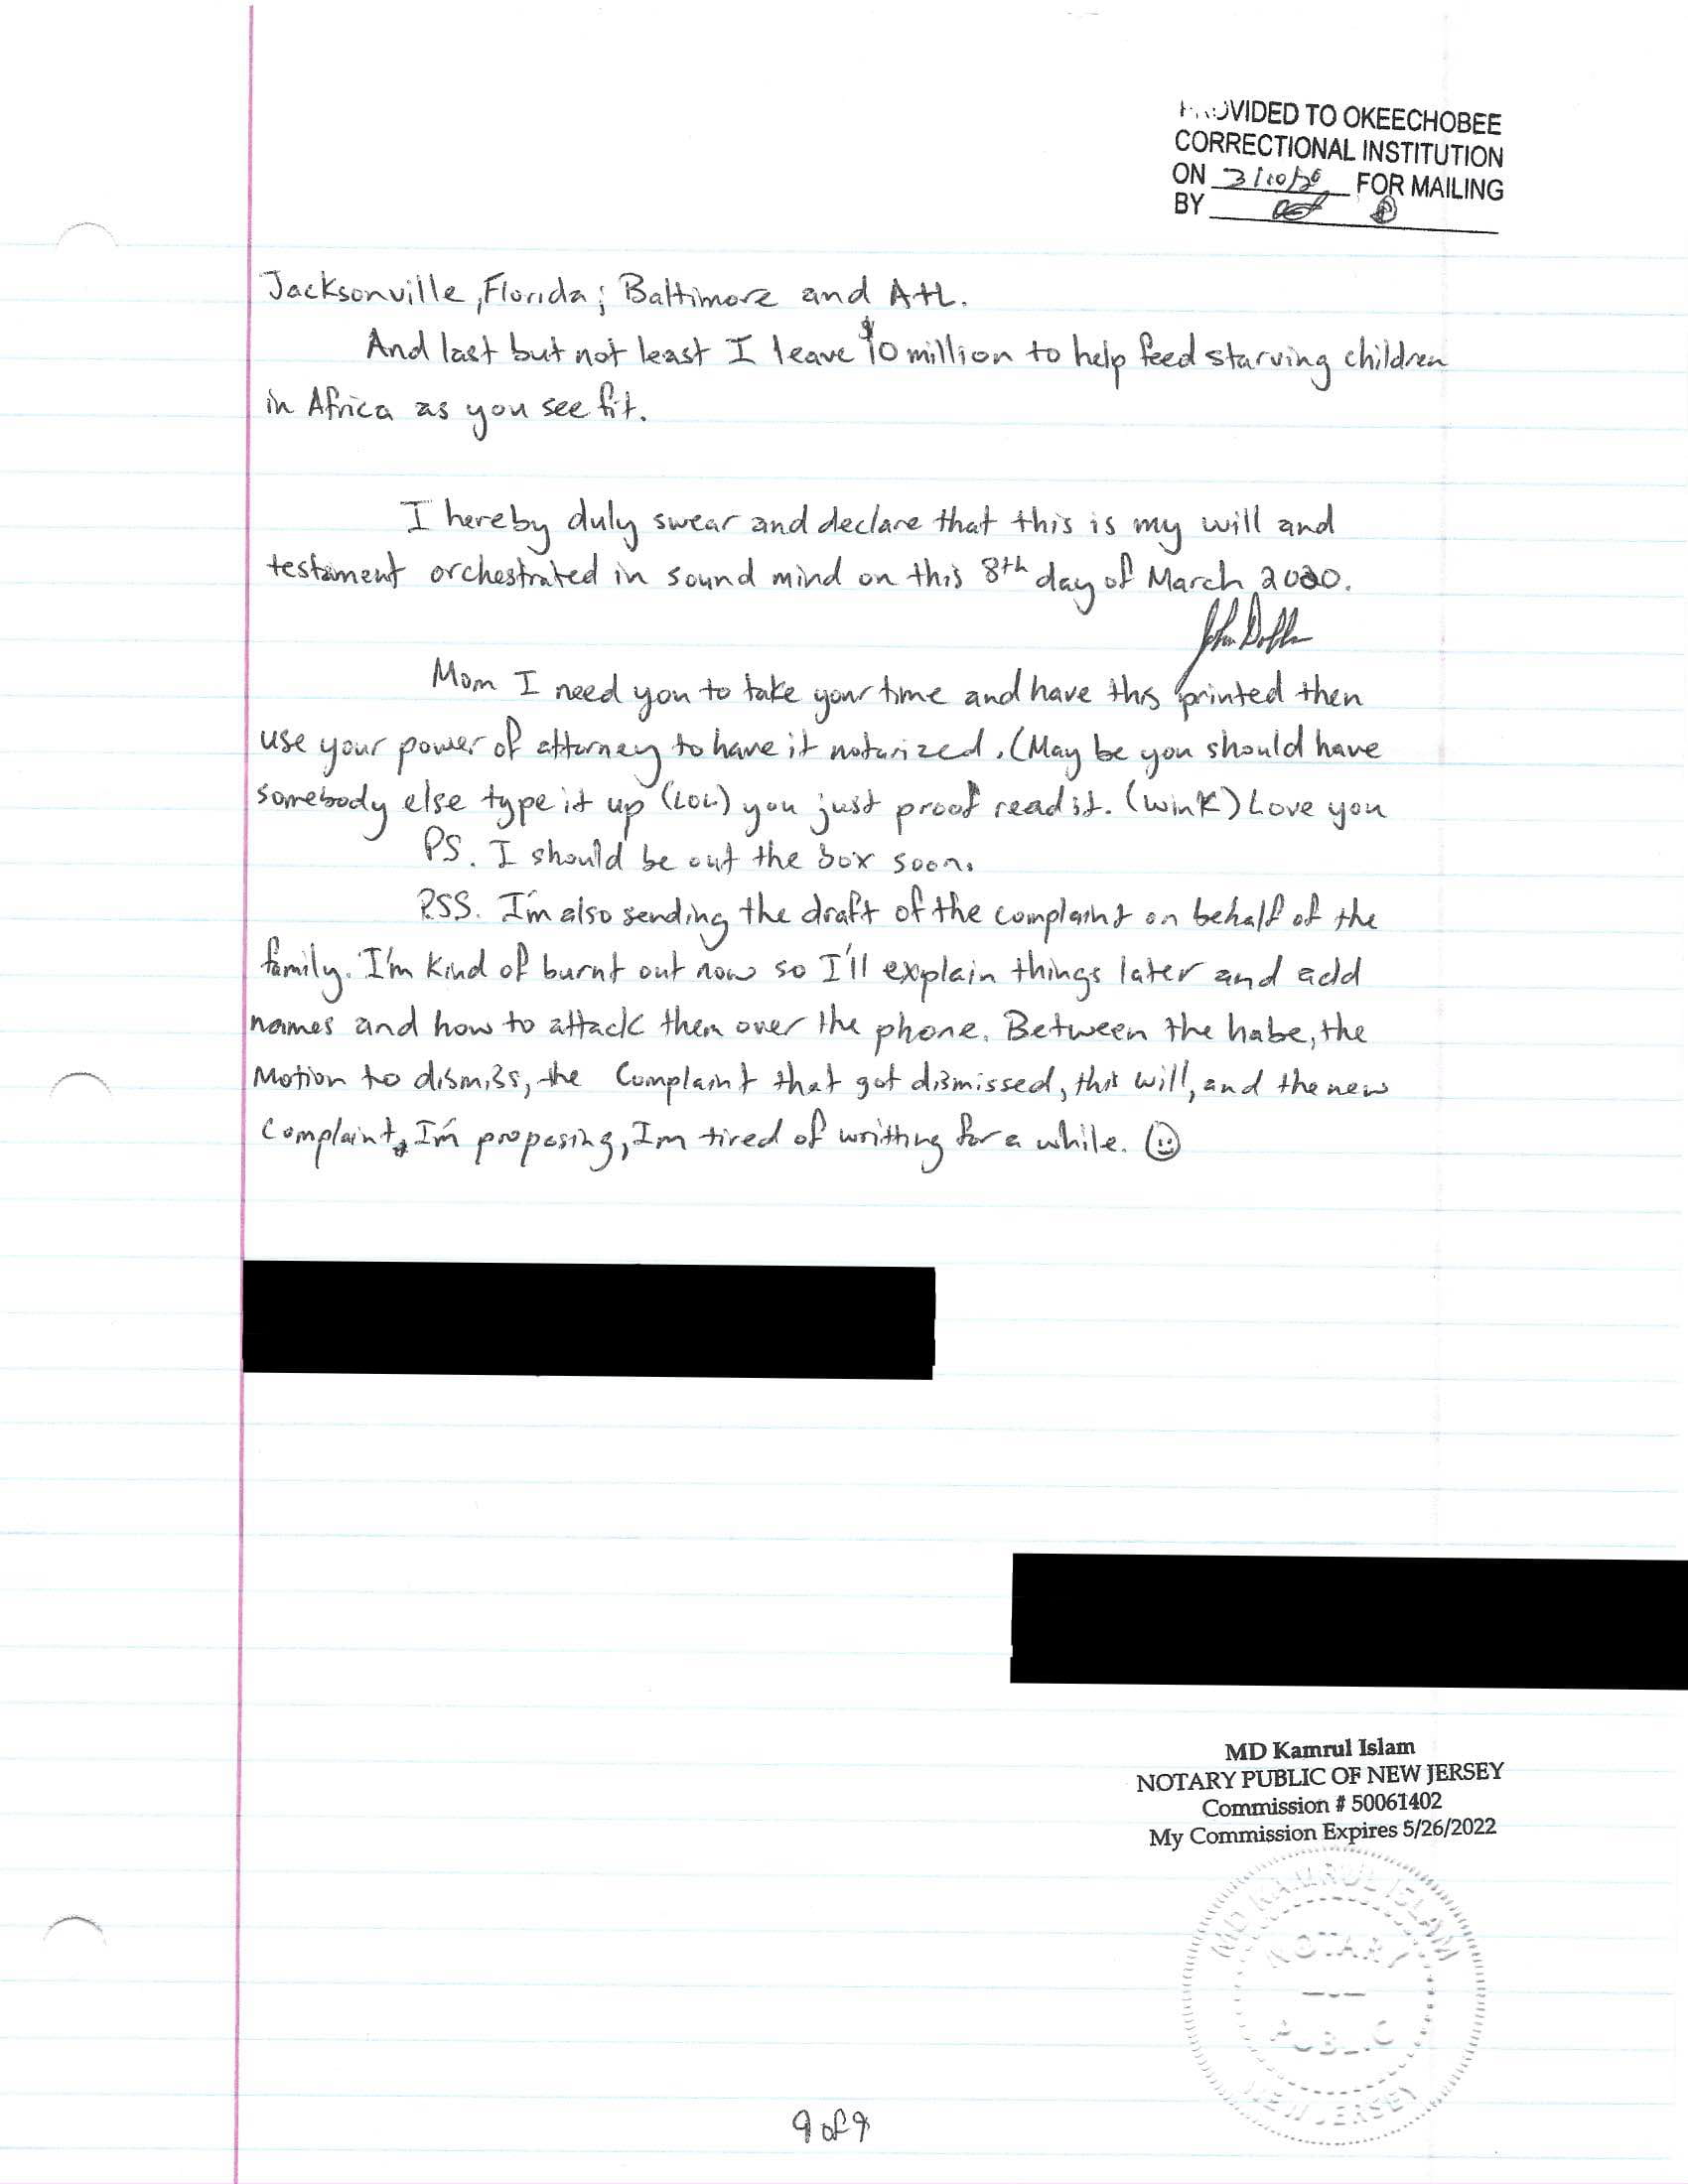 PROVIDED TO OKEECHOBEE
CORRECTIONAL INSTITUTION
ON 3/10/20 FOR MAILING
BY
Jacksonville, Florida; Baltimore and AtL.
And last but not least I leave $10 million to help feed starving children
in Africa as you see fit.
I hereby duly swear and declare that this is my will and
testament orchestrated in sound mind on this 8th day of March 2020.
Mom I need you to take your time and have this printed then
use your power of attorney to have it notarized. (May be you should have
somebody else type it up (LOL) you just proof read it. (wink) Love you
PS. I should be out the box soon.
PSS. I'm also sending the draft of the complaint on behalf of the
family. I'm kind of burnt out now so I'll explain things later and add
names and how to attack them over the phone. Between the habe, the
Motion to dismiss, the Complaint that got dismissed, this will, and the new
Complaint, I'm proposing, Im tired of writting for a while.
MD Kamrul Islam
NOTARY PUBLIC OF NEW JERSEY
Commission # 50061402
My Commission Expires 5/26/2022
MD KAMRUL ISLAM
NOTARY
PUBLIC
NEW JERSEY
9 of 9